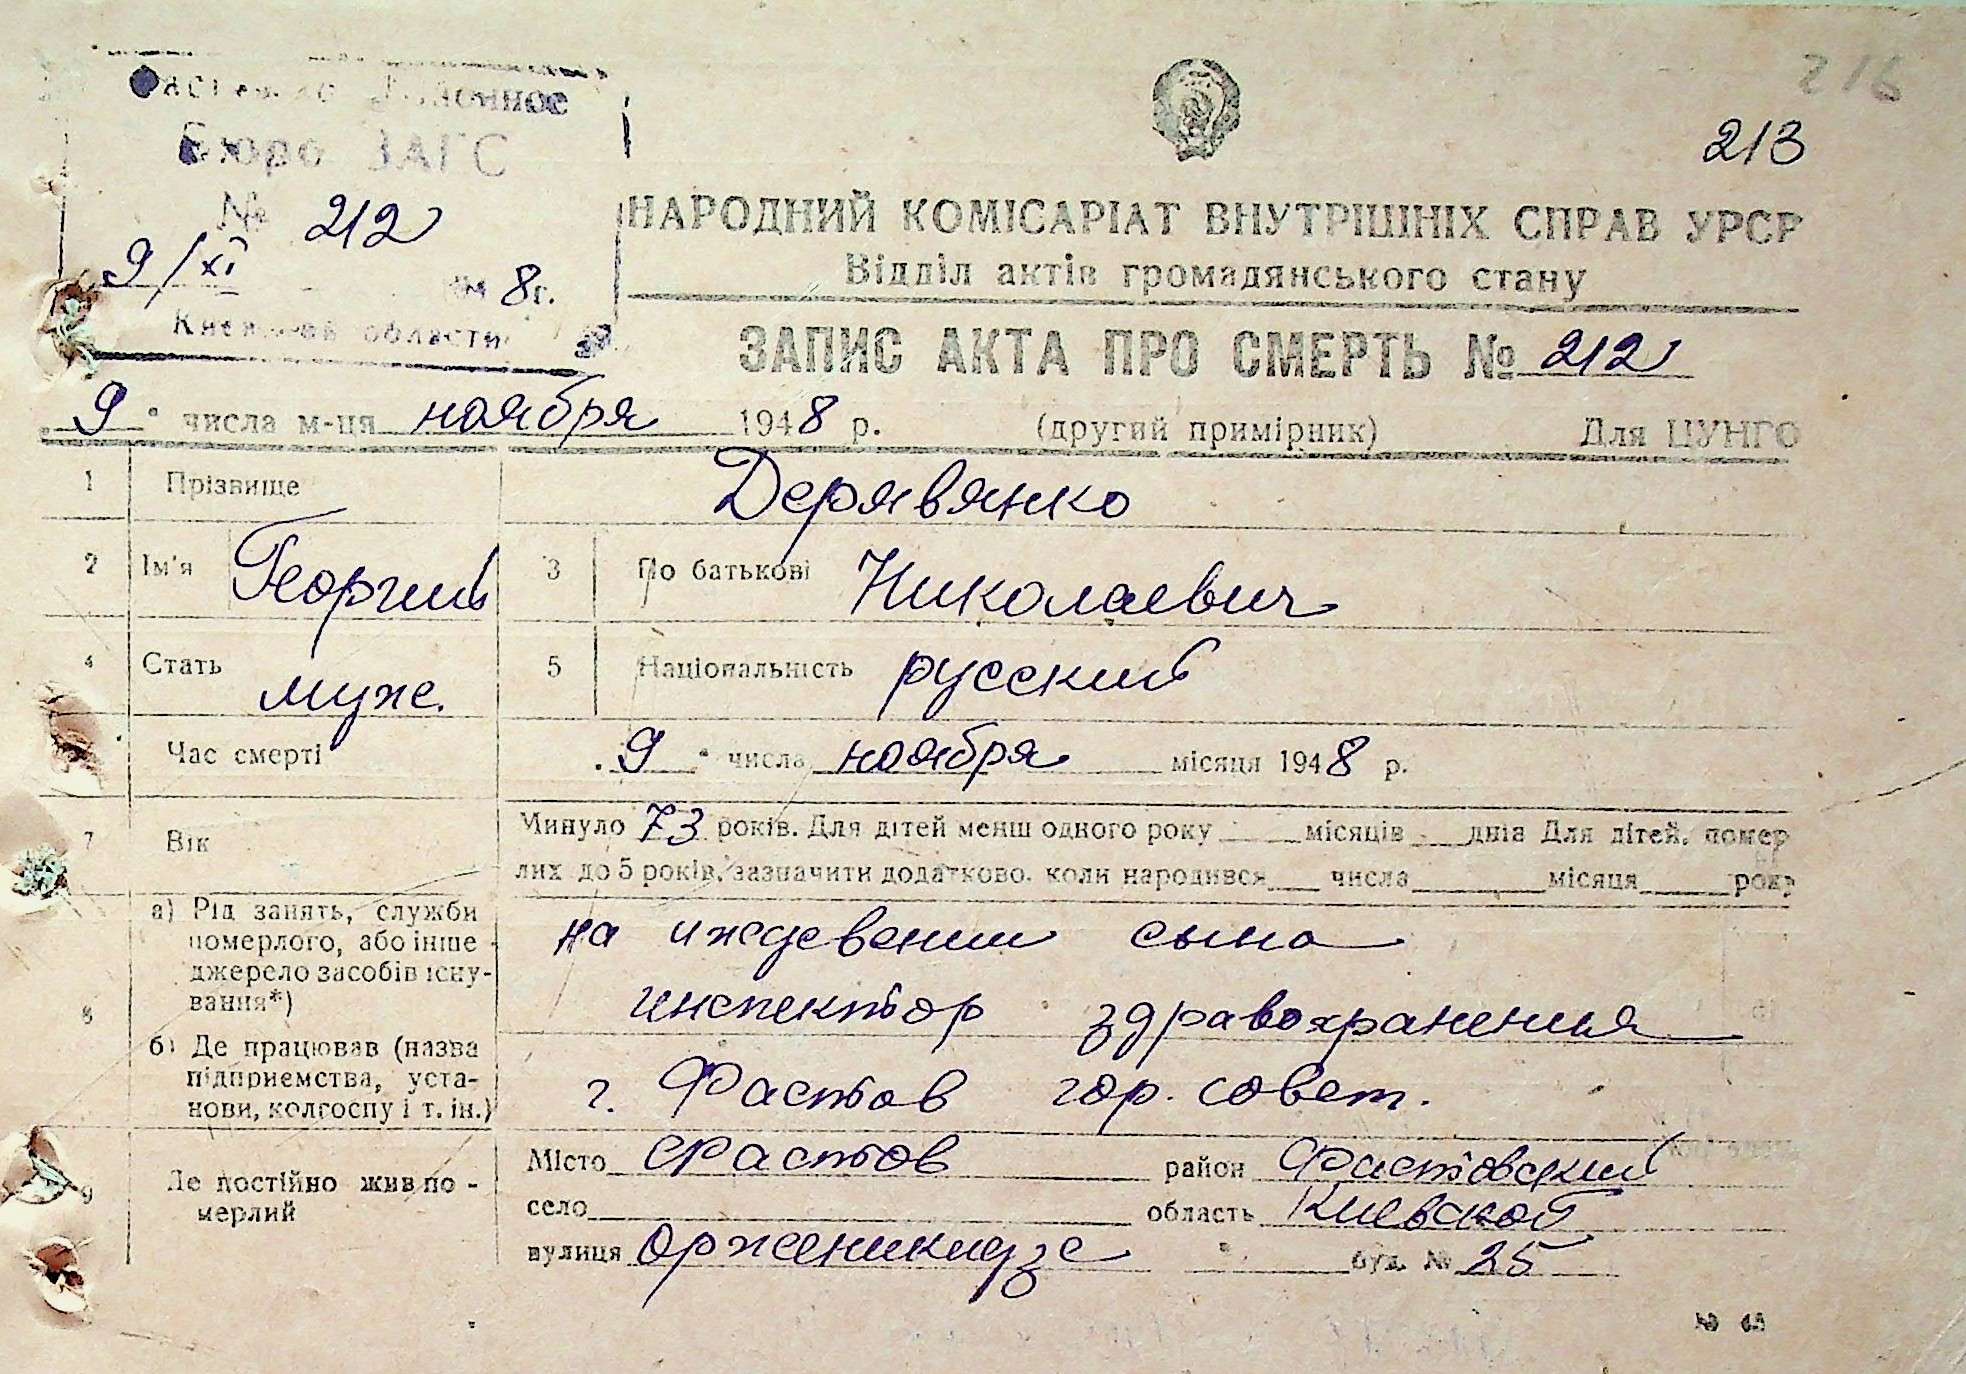 216
213
районное
Бюро ЗАГС
№ 212
9/XI 8г.
области
НАРОДНИЙ КОМІСАРІАТ ВНУТРІШНІХ СПРАВ УРСР
Відділ актів громадянського стану
ЗАПИС АКТА ПРО СМЕРТЬ № 212
9 числа м-ця ноября 1948 р. (другий примірник) Для ЦУНГО
1 Прізвище Дерявянко
2 Ім'я Георгий 3 По батькові Николаевич
4 Стать муж. 5 Національність русский
Час смерті 9 числа ноября місяця 1948 р.
7 Вік Минуло 73 років. Для дітей менш одного року місяців днів Для дітей, помер
лих до 5 років, зазначити додатково, коли народився числа місяця року
8 а) Рід занять, служби
померлого, або інше
джерело засобів існу-
вання*)
на иждевении сына
инспектор здравохранения
б) Де працював (назва
підприємства, уста-
нови, колгоспу і т. ін.)
г. Фастов гор. совет.
9 Де постійно жив по-
мерлий
Місто Фастов район Фастовский
село область Киевской
вулиця Орженикидзе буд. № 25
№ 65